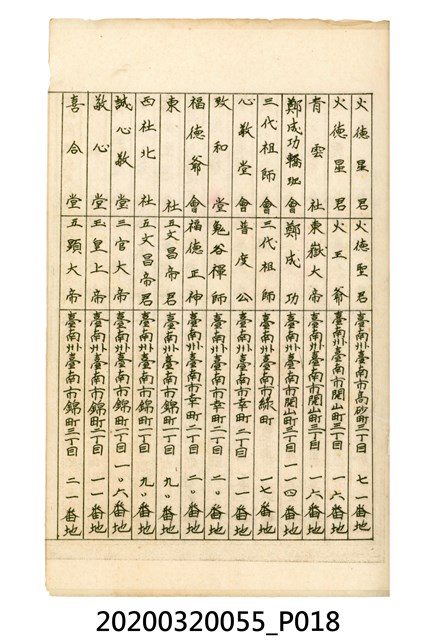 火德星君 火德聖君 臺南州臺南市高砂町三丁目 七一番地
火德星君 火王爺 臺南州臺南市開山町三丁目 一六番地
青雲社 東嶽大帝 臺南州臺南市開山町三丁目 一六番地
鄭成功轎班會 鄭成功 臺南州臺南市開山町三丁目 一一四番地
三代祖師會 三代祖師 臺南州臺南市綠町 一七番地
心敬堂會 普度公 臺南州臺南市幸町二丁目 一一番地
致和堂 鬼谷禪師 臺南州臺南市幸町二丁目 二〇番地
福德爺會 福德正神 臺南州臺南市幸町二丁目 二〇番地
東社 五文昌帝君 臺南州臺南市錦町二丁目 九〇番地
西社北社 五文昌帝君 臺南州臺南市錦町二丁目 九〇番地
誠心敬堂 三官大帝 臺南州臺南市錦町二丁目 一〇六番地
敬心堂 玉皇上帝 臺南州臺南市錦町二丁目 一一番地
喜合堂 五顯大帝 臺南州臺南市錦町三丁目 二一番地
20200320055_P018